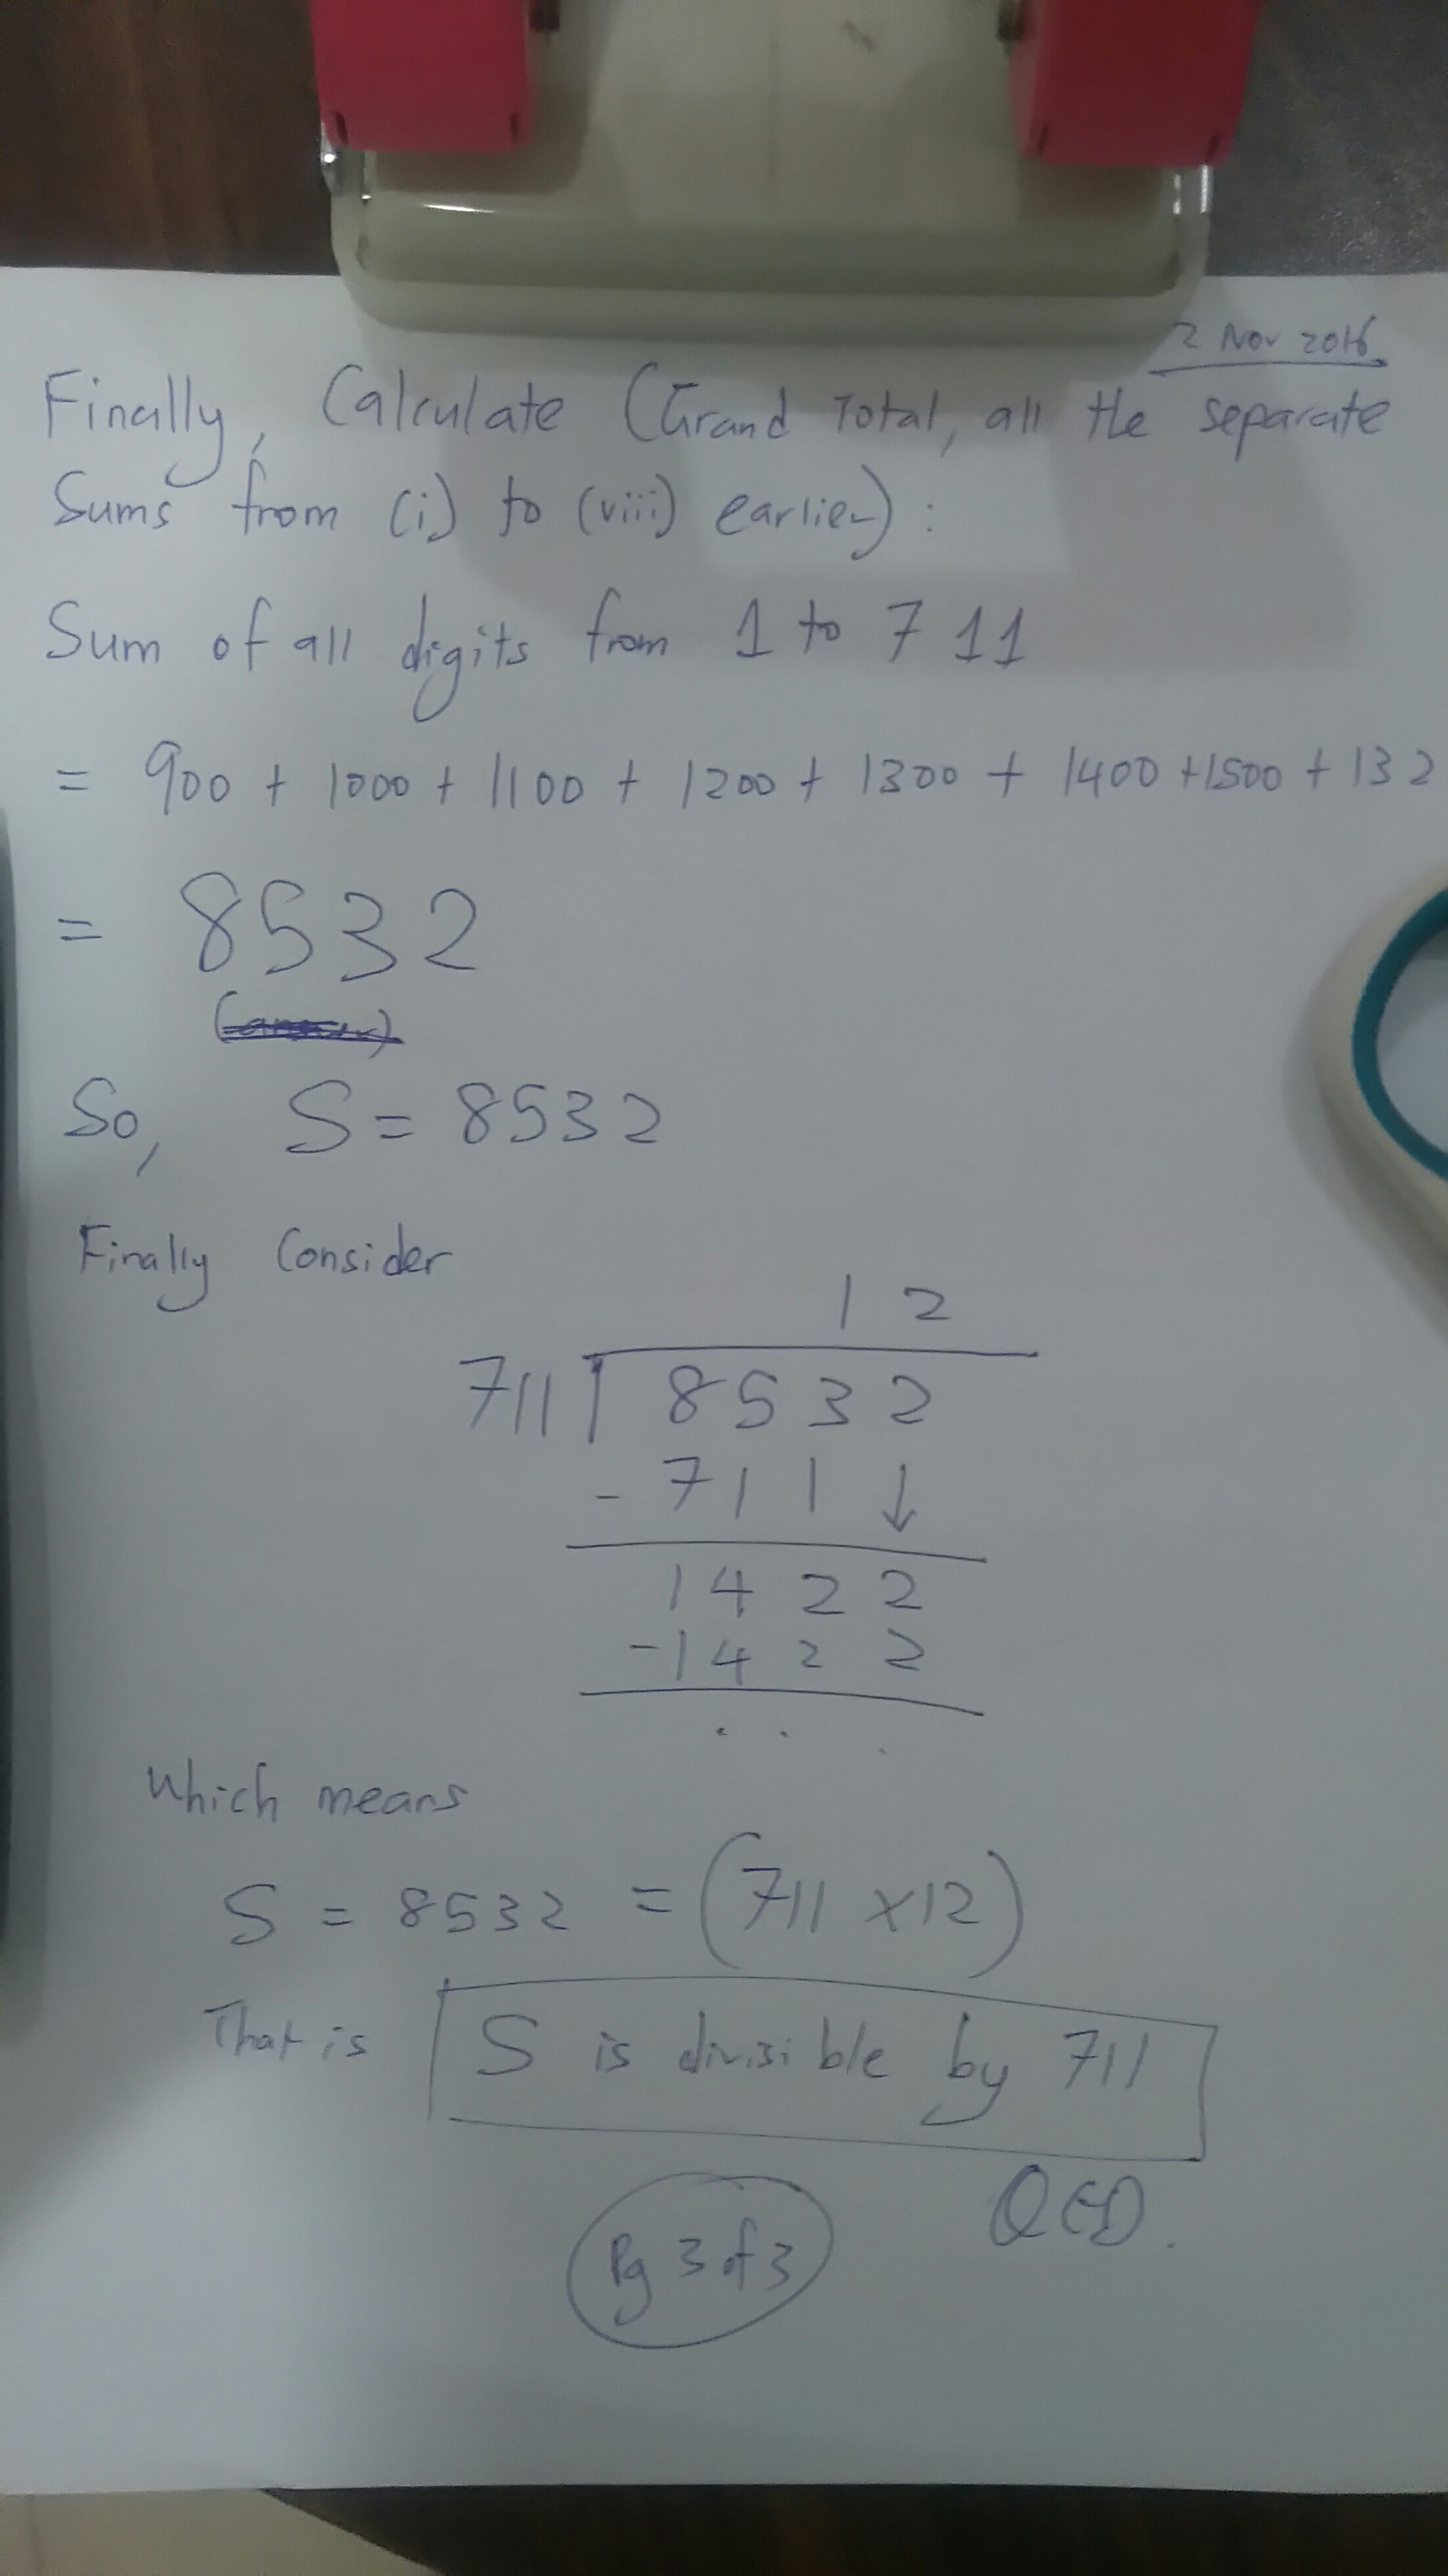 2 Nov 2016
Finally, Calculate (Grand Total, all the separate
Sums from (i) to (viii) earlier) :
Sum of all digits from 1 to 711
= 900 + 1000 + 1100 + 1200 + 1300 + 1400 + 1500 + 132
= 8532
So, S = 8532
Finally Consider
12
711 8532
- 711 ↓
1422
-1422
. . .
Which means
S = 8532 = (711 x 12)
That is S is divisible by 711
QED.
Pg 3 of 3